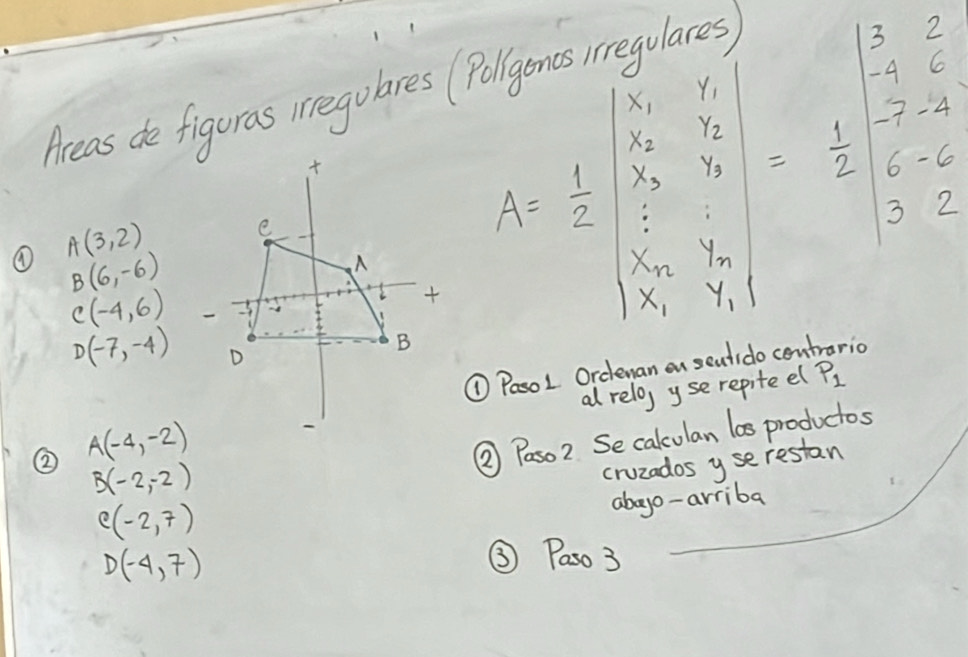 Areas de figuras irregulares (Polígonos irregulares)
① A(3,2)
B(6,-6)
C(-4,6)
D(-7,-4)
+
C
A
- +
D B
-
A= 1/2 | X₁ Y₁
X₂ Y₂
X₃ Y₃
⋮ ⋮
Xₙ Yₙ
X₁ Y₁ | = 1/2 | 3 2
-4 6
-7 -4
6 -6
3 2
② A(-4,-2)
B(-2,-2)
C(-2,7)
D(-4,7)
① Paso 1 Ordenan en sentido contrario
al reloj y se repite el P₁
② Paso 2 Se calculan los productos
cruzados y se restan
abajo-arriba
③ Paso 3